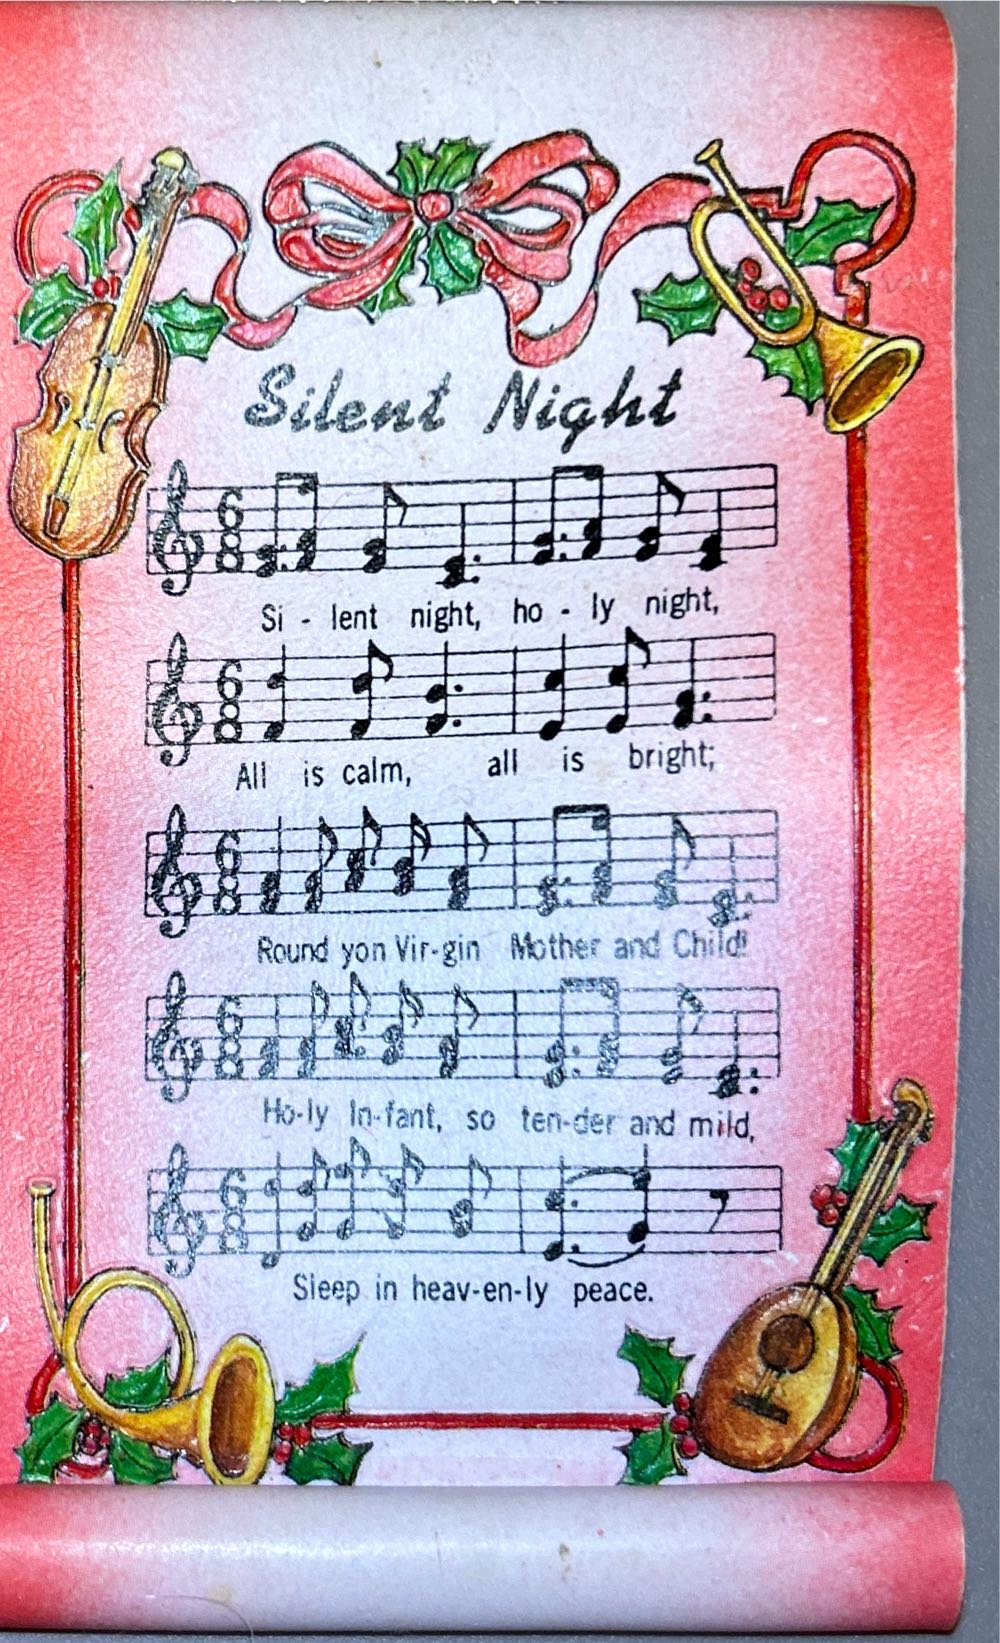 Silent Night
Si - lent night, ho - ly night,
All is calm, all is bright;
Round yon Vir-gin Mother and Child!
Ho-ly In-fant, so ten-der and mild,
Sleep in heav-en-ly peace.